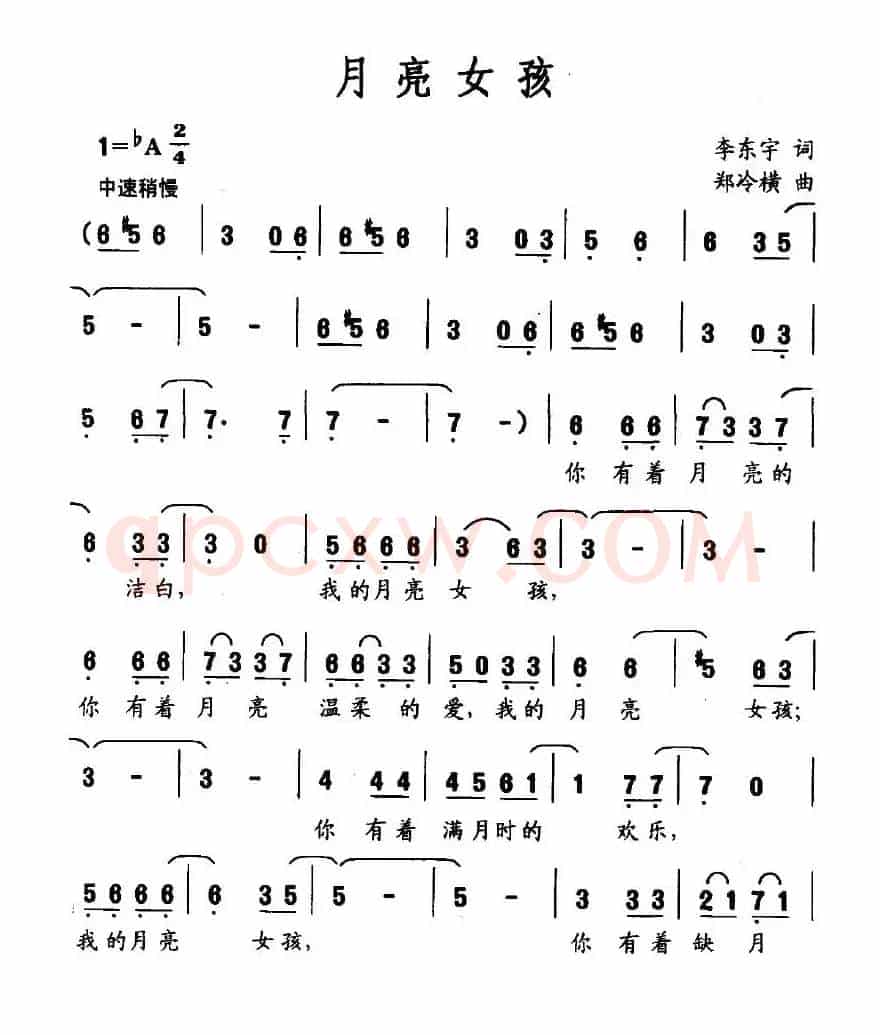 月亮女孩
1=♭A 2/4
李东宇 词
中速稍慢
郑冷横 曲
(6 #5 6 | 3 0 6 | 6 #5 6 | 3 0 3 | 5 6 | 6 3 5 |
5 - | 5 - | 6 #5 6 | 3 0 6 | 6 #5 6 | 3 0 3 |
5 6 7 | 7· 7 | 7 - | 7 -) | 6 6 6 | 7 3 3 7 |
你 有着 月 亮的
qpcxw.COM
6 3 3 | 3 0 | 5 6 6 6 | 3 6 3 | 3 - | 3 -
洁白, 我的月亮 女 孩,
6 6 6 | 7 3 3 7 | 6 6 3 3 | 5 0 3 3 | 6 6 | #5 6 3 |
你 有着 月 亮 温柔 的 爱, 我的 月 亮 女孩;
3 - | 3 - | 4 4 4 | 4 5 6 1 | 1 7 7 | 7 0 |
你 有着 满月时的 欢乐,
5 6 6 6 | 6 3 5 | 5 - | 5 - | 3 3 3 | 2 1 7 1 |
我的月亮 女孩, 你 有着 缺 月